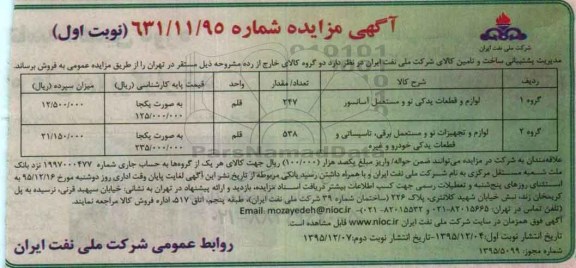 آگهی مزایده شماره ۶۳۱/۱۱/۹۵ (نوبت اول)
شرکت ملی نفت ایران
مدیریت پشتیبانی ساخت و تامین کالای شرکت ملی نفت ایران در نظر دارد دو گروه کالای خارج از رده مشروحه ذیل مستقر در تهران را از طریق مزایده عمومی به فروش برساند.
ردیف شرح کالا تعداد/ مقدار واحد قیمت پایه کارشناسی (ریال) میزان سپرده (ریال)
گروه ۱ لوازم و قطعات یدکی نو و مستعمل آسانسور ۲۴۷ قلم به صورت یکجا ۱۲۵/۰۰۰/۰۰۰ ۱۲/۵۰۰/۰۰۰
گروه ۲ لوازم و تجهیزات نو و مستعمل برقی، تاسیساتی و قطعات یدکی خودرو و غیره ۵۳۸ قلم به صورت یکجا ۲۳۵/۰۰۰/۰۰۰ ۲۱/۱۵۰/۰۰۰
علاقه‌مندان به شرکت در مزایده می‌توانند ضمن حواله/ واریز مبلغ یکصد هزار (۱۰۰/۰۰۰) ریال جهت کالای هر یک از گروه‌ها به حساب جاری شماره ۱۹۹۷۰۰۰۴۷۷ نزد بانک
ملت شعبه مستقل مرکزی به نام شرکت ملی نفت ایران و با همراه داشتن رسید بانکی مربوطه از تاریخ نشر این آگهی لغایت پایان وقت اداری روز دوشنبه مورخ ۹۵/۱۲/۱۶ به
استثنای روزهای پنج‌شنبه و تعطیلات رسمی جهت کسب اطلاعات بیشتر دریافت اسناد مزایده، بازدید و ارائه پیشنهاد در تهران به نشانی: خیابان سپهبد قرنی، نرسیده به پل
کریمخان زند، نبش خیابان شهید کلانتری، پلاک ۲۲۶ (ساختمان شماره ۳۹ شرکت ملی نفت ایران)، طبقه پنجم، اتاق ۵۱۷، اداره فروش کالا مراجعه نمایند.
(تلفن تماس در تهران: ۸۲۰۱۵۶۶۵-۰۲۱ و ۸۲۰۱۵۵۳۲-۰۲۱) Email: mozayedeh@nioc.ir
آگهی فوق همزمان در سایت شرکت ملی نفت ایران www.nioc.ir قابل مشاهده است.
تاریخ انتشار نوبت اول: ۱۳۹۵/۱۲/۰۴-تاریخ انتشار نوبت دوم: ۱۳۹۵/۱۲/۰۷
شماره مجوز: ۱۳۹۵/۵۰۹۹
روابط عمومی شرکت ملی نفت ایران